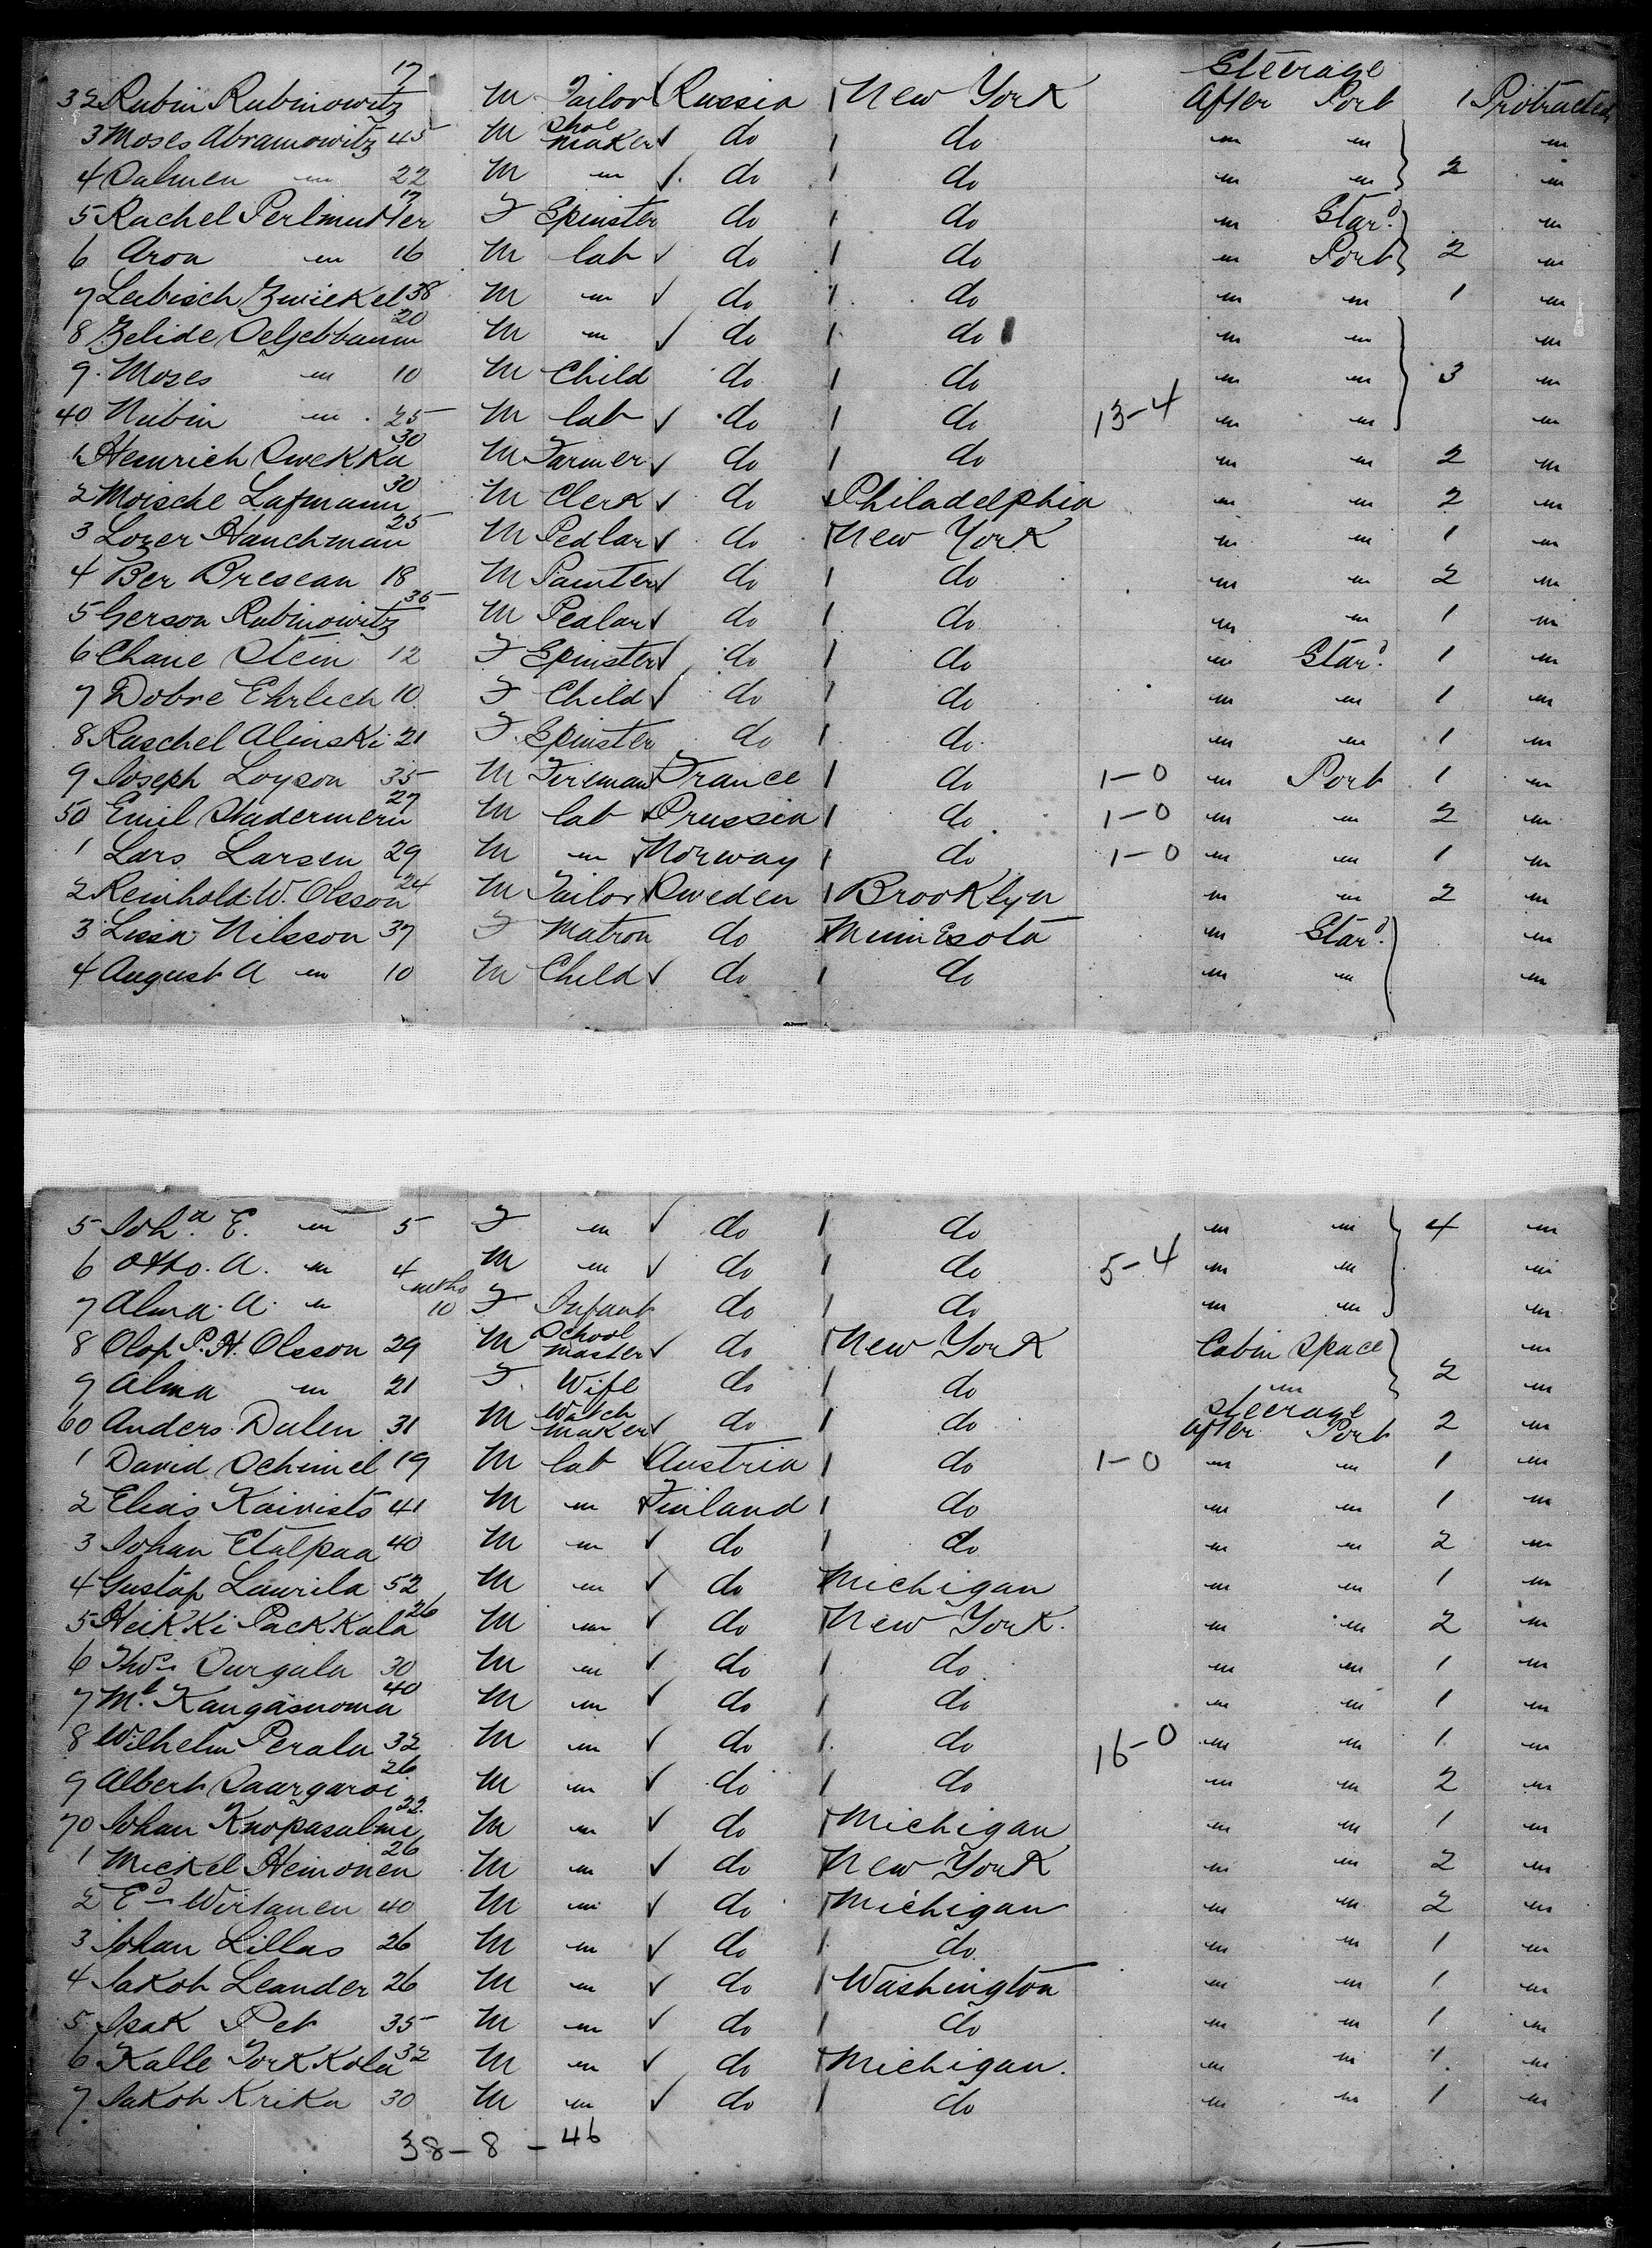 Steerage
32 Rubin Rubinowitz 17 M Tailor Russia New York After Port 1 Protracted
3 Moses Abramowitz 45 M Shoe maker do do " " "
4 Salmen " 22 M " do do " " 2 "
5 Rachel Perlmutter 17 F Spinster do do " Star.d "
6 Aron " 16 M lab do do " Port 2 "
7 Leibisch Zwickel 38 M " do do " " 1 "
8 Zelide 20 M " do do " " "
9 Moses " 10 M Child do do " " 3 "
40 Nubin " 25 M lab do do 13-4 " " "
1 Heinrich Swekka 30 M Farmer do do " " 2 "
2 Moische Lafmann 30 M Clerk do Philadelphia " " 2 "
3 Lozer Hauchman 25 M Pedlar do New York " " 1 "
4 Ber Bresean 18 M Painter do do " " 2 "
5 Gerson Rubinowitz 35 M Pedlar do do " " 1 "
6 Chane Stein 12 F Spinster do do " Star.d 1 "
7 Dobre Ehrlich 10 F Child do do " " 1 "
8 Raschel Alinski 21 F Spinster do do " " 1 "
9 Joseph Loyson 35 M Fireman France do 1-0 " Port 1 "
50 Emil 27 M lab Prussia do 1-0 " " 2 "
1 Lars Larsen 29 M " Norway do 1-0 " " 1 "
2 Reinhold W. Olsson 24 M Tailor Sweden Brooklyn " " 2 "
3 Lissa Nilsson 37 F Matron do Minnesota " Star.d "
4 August A " 10 M Child do do " " "
5 Joh.a E. " 5 F " do do " " 4 "
6 Otto. A. " 4 M " do do 5-4 " " "
7 Alma. A. " mths 10 F Infant do do " " "
8 Olof P. H. Olsson 29 M School master do New York Cabin Space "
9 Alma " 21 F. Wife do do " 2 "
Steerage
60 Anders Dalen 31 M Watch maker do do After Port 2 "
1 David Schimel 19 M lab Austria do 1-0 " " 1 "
2 Elias Koivisto 41 M " Finland do " " 1 "
3 Johan Etalpaa 40 M " do do " " 2 "
4 Gustaf Laurila 52 M " do Michigan " " 1 "
5 Heikki Packkala 26 M " do New York " " 2 "
6 Thos Surgula 30 M " do do " " 1 "
7 Mt Kangasnoma 40 M " do do " " 1 "
8 Wilhelm Perala 32 M " do do 16-0 " " 1 "
9 Albert Saargaroi 26 M " do do " " 2 "
70 Johan Knopasalmi 22 M " do Michigan " " 1 "
1 Mickel Heinonen 26 M " do New York " " 2 "
2 Ed Wirtanen 40 M " do Michigan " " 2 "
3 Johan Lillas 26 M " do do " " 1 "
4 Jakob Leander 26 M " do Washington " " 1 "
5 Isak Pet 35 M " do do " " 1 "
6 Kalle Torkkola 32 M " do Michigan. " " 1 "
7 Jakob Krika 30 M " do do " " 1 "
38-8-46